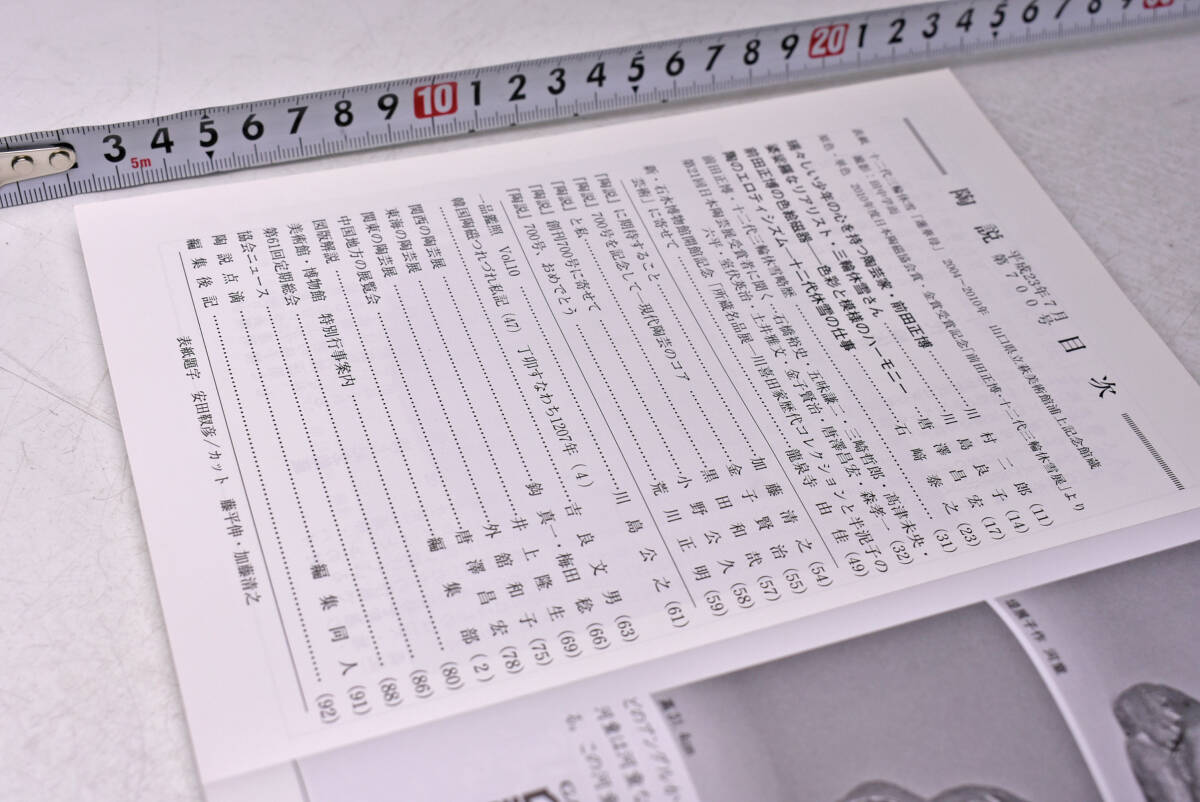 3 4 5 6 7 8 9 10 1 2 3 4 5 6 7 8 9 20 1 2 3 4 5 6 7 8 9
5m
陶説 平成23年7月 第700号 目次
表紙 十二代三輪休雪「蓮華母」 2004-2010年 山口県立萩美術館浦上記念館蔵
撮影:田中学而
原色・単色 2010年度日本陶磁協会賞・金賞受賞記念「前田正博・十二代三輪休雪展」より
瑞々しい少年の心を持つ陶芸家・前田正博 川村二郎 (11)
婆娑羅なリアリスト・三輪休雪さん 川島良子 (14)
前田正博の色絵磁器――色彩と模様のハーモニー 唐澤昌宏 (17)
陶のエロティシズム―十二代休雪の仕事 石﨑泰之 (23)
前田正博・十二代三輪休雪略歴 (31)
第21回日本陶芸展受賞者に聞く・石橋裕史 五味謙二・三崎哲郎・高津未央・
六平・室伏英治・土井雅文 金子賢治・唐澤昌宏・森孝一 (32)
新・石水博物館開館記念「所蔵名品展―川喜田家歴代コレクションと半泥子の
芸術」に寄せて 龍泉寺由佳 (49)
「陶説」に期待すること 加藤清之 (54)
「陶説」700号を記念して―現代陶芸のコア 金子賢治 (55)
「陶説」と私 黒田和哉 (57)
「陶説」創刊700号に寄せて 小野公久 (58)
「陶説」700号、おめでとう 荒川正明 (59)
一品鑑照 Vol.10 川島公之 (61)
韓国陶磁つれづれ私記 (47) 丁卯すなわち1207年 (4) 吉良文男 (63)
関西の陶芸展 鈎真一・梅田稔 (66)
東海の陶芸展 井上隆生 (69)
関東の陶芸展 外舘和子 (75)
中国地方の展覧会 唐澤昌宏 (78)
図版解説 編集部 (2)
美術館・博物館 特別行事案内 (80)
第61回定期総会 (86)
協会ニュース (88)
陶説点滴 編集同人 (91)
編集後記 (92)
表紙題字 安田靫彦/カット 藤平伸・加藤清之
作 河童
高31.4cm
どのアングルか
河童は河童な
る。この河童